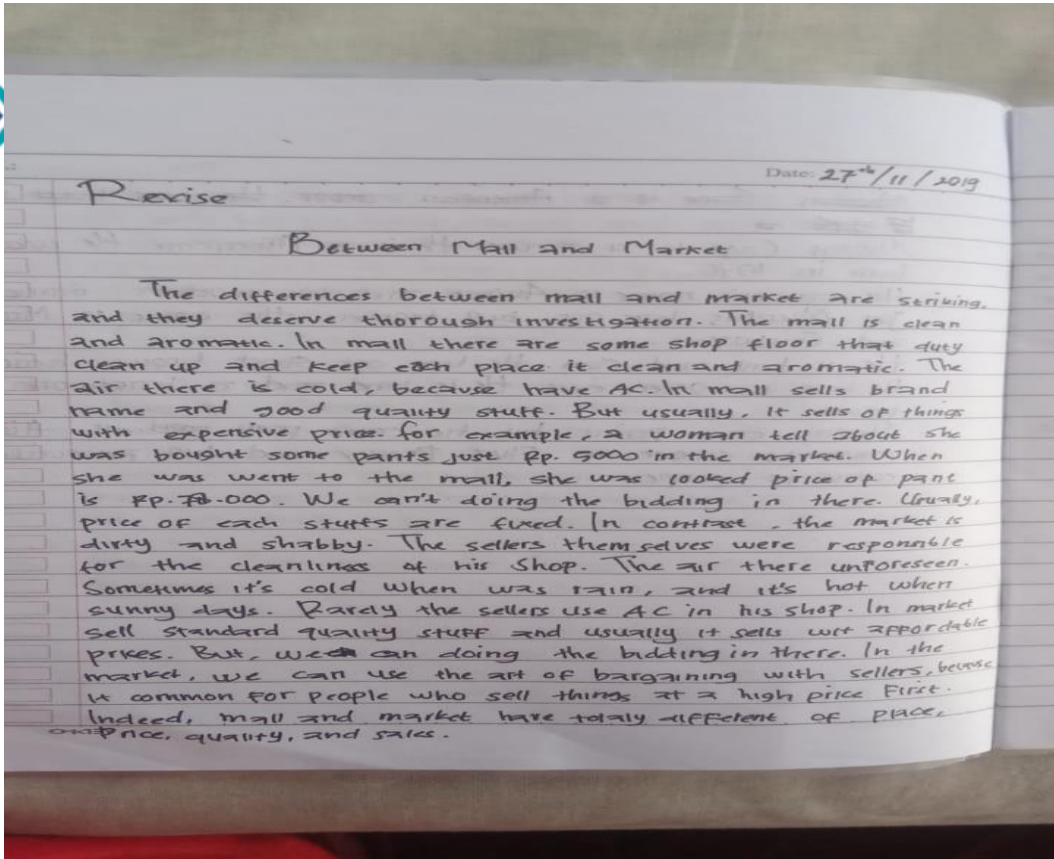 Date: 27th/11/2019
Revise
Between Mall and Market
The differences between mall and market are striking.
and they deserve thorough investigation. The mall is clean
and aromatic. In mall there are some shop floor that duty
clean up and keep each place it clean and aromatic. The
air there is cold, because have AC. In mall sells brand
name and good quality stuff. But usually, it sells of things
with expensive price. for example, a woman tell about she
was bought some pants just Rp. 5000 in the market. When
she was went to the mall, she was looked price of pant
is Rp. .000. We can't doing the bidding in there. Usually,
price of each stuffs are fixed. In contrast, the market is
dirty and shabby. The sellers them selves were responsible
for the cleanliness of his shop. The air there unforeseen.
Sometimes it's cold when was rain, and it's hot when
sunny days. Rarely the sellers use AC in his shop. In market
sell standard quality stuff and usually it sells affordable
prices. But, we can doing the bidding in there. In the
market, we can use the art of bargaining with sellers, because
it common for people who sell things at a high price first.
Indeed, mall and market have totaly different of place,
Price, quality, and sales.